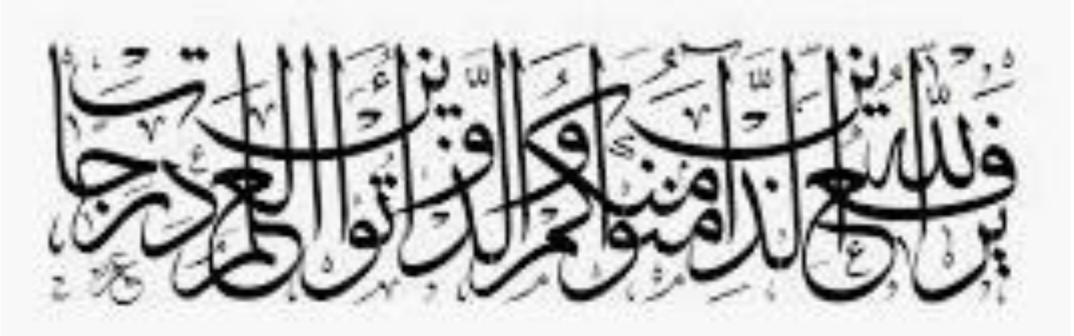 يرفع الله الذين آمنوا منكم والذين أوتوا العلم درجات